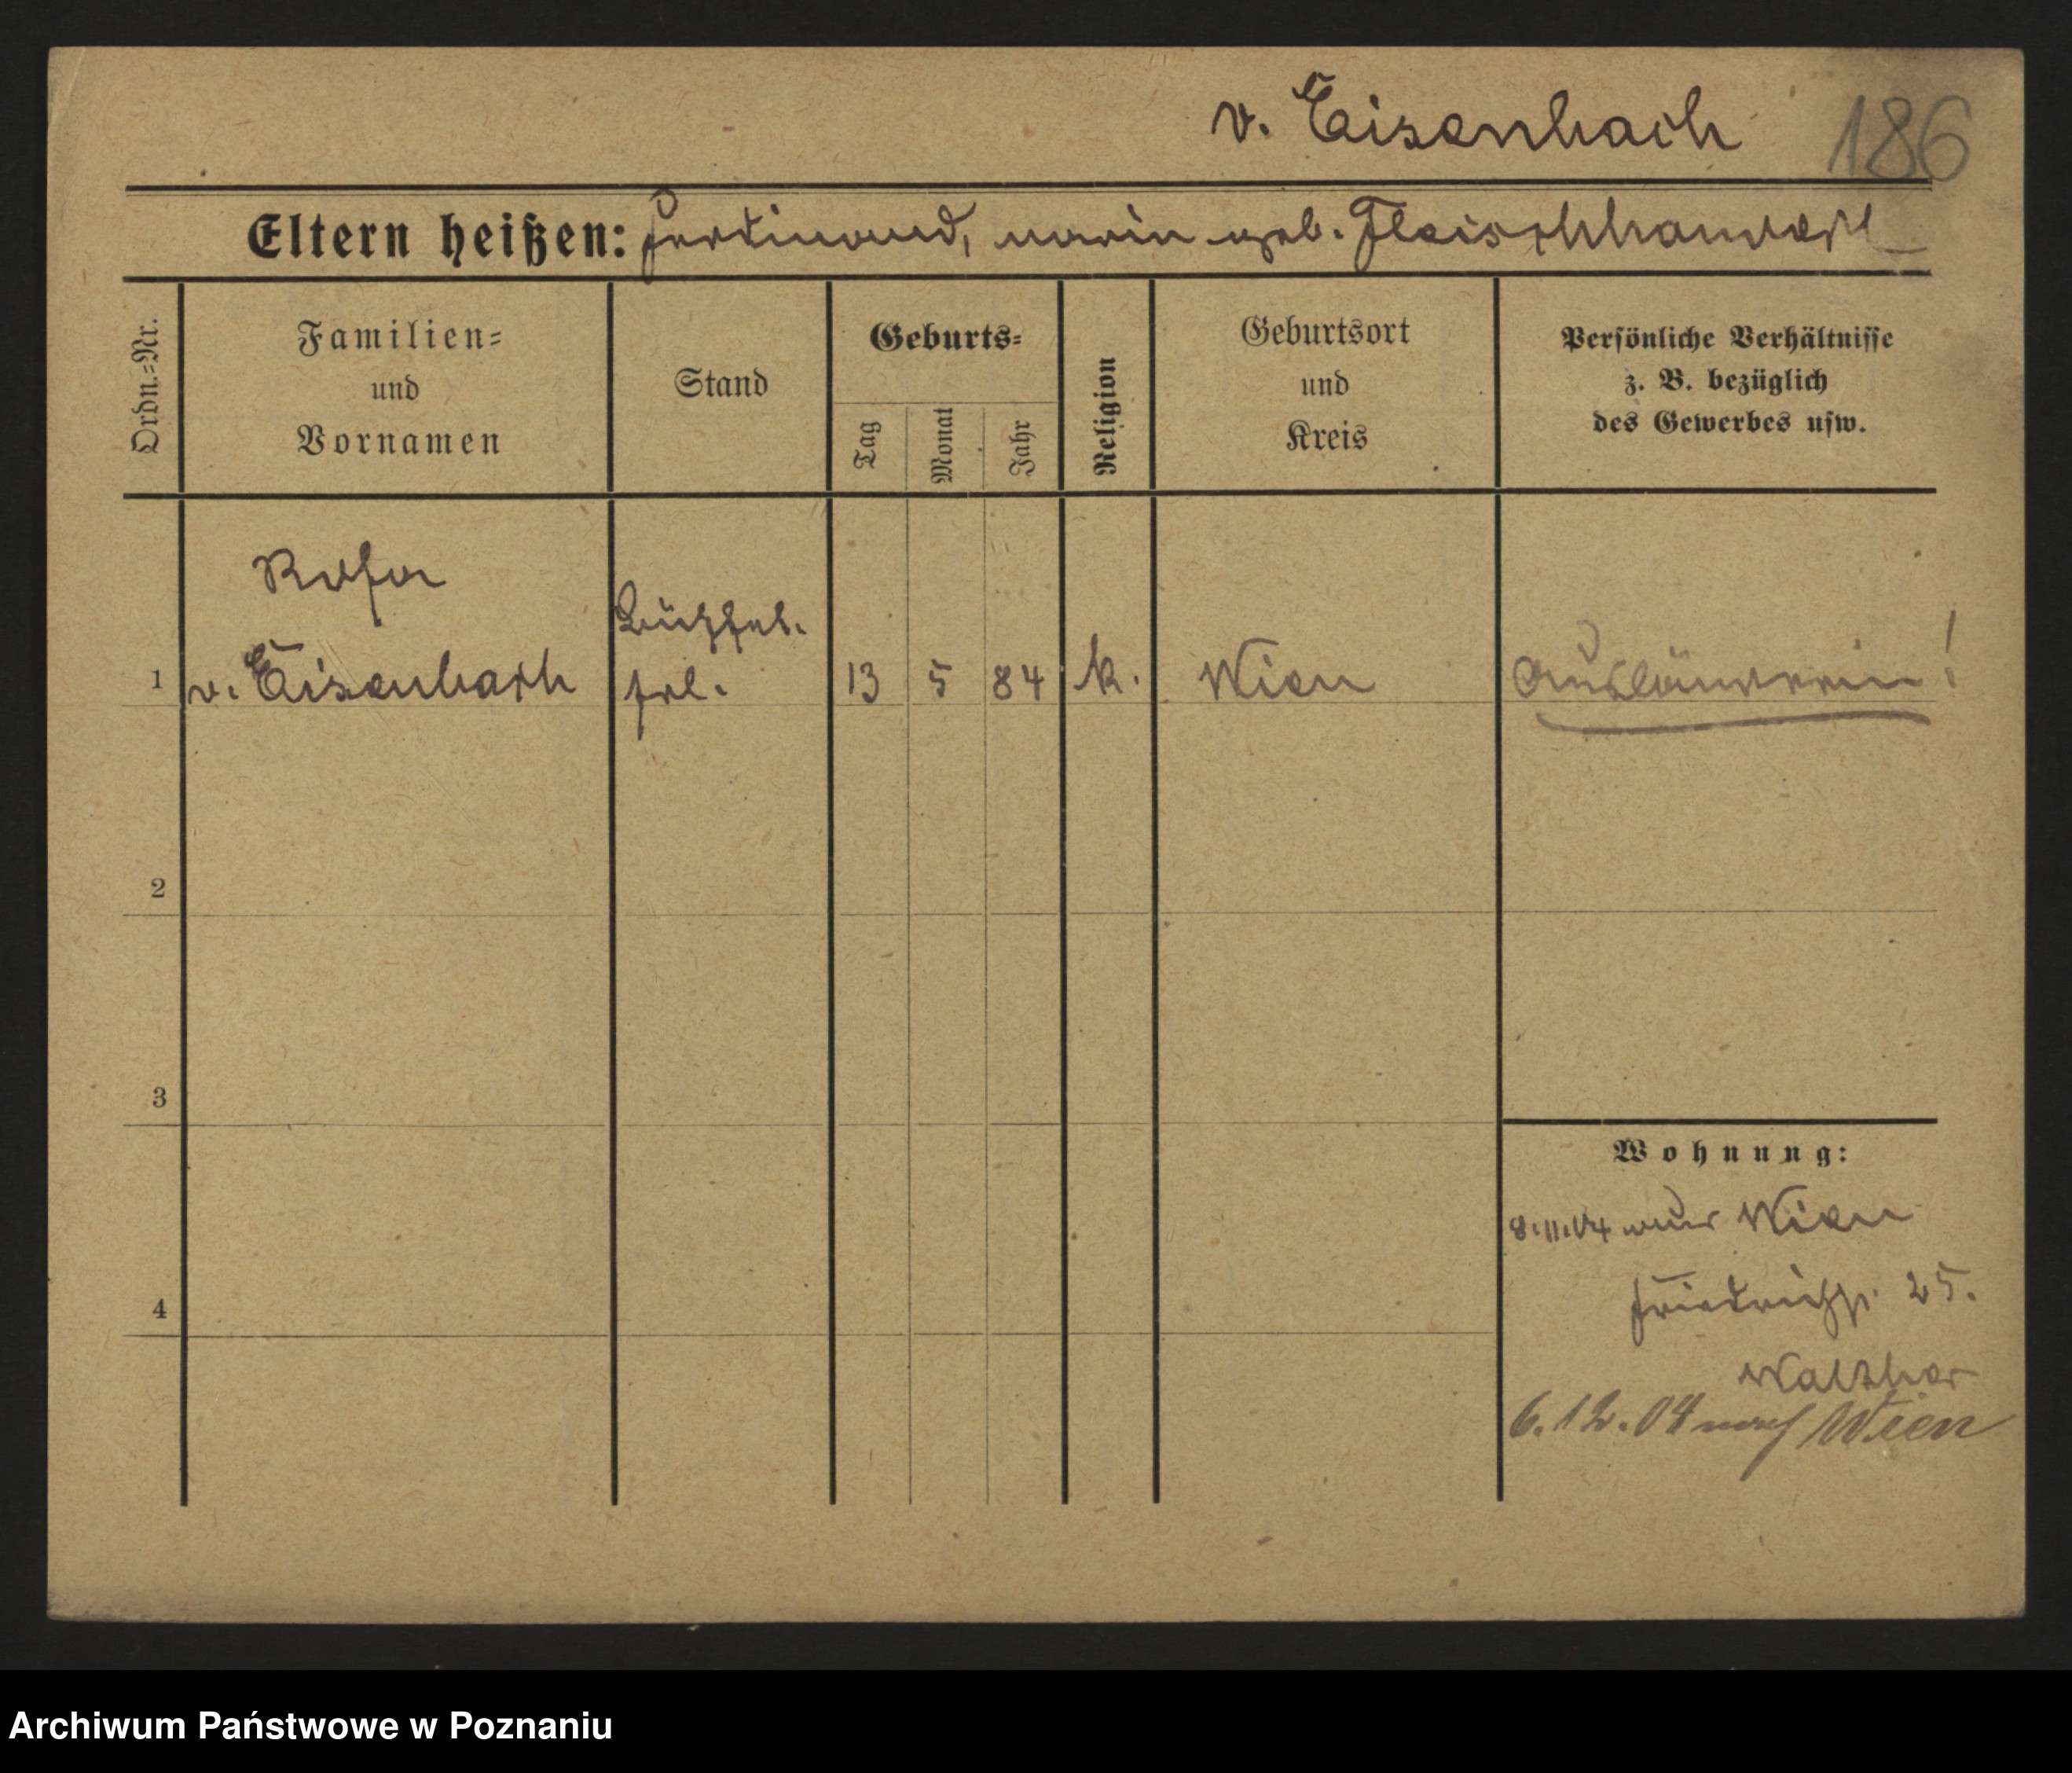 v. Eisenbach 186
Eltern heißen: Ferdinand, Marie geb. Fleischhanderl
Ordn.=Nr.
Familien=
und
Vornamen
Stand
Geburts=
Tag
Monat
Jahr
Religion
Geburtsort
und
Kreis
Persönliche Verhältnisse
z. B. bezüglich
des Gewerbes usw.
Rosa
1 v. Eisenbach
frl. 13 5 84 k. Wien Ausländerin!
2
3
4
Wohnung:
8.11.04 aus Wien
Friedrichstr. 25.
Walther
6.12.04 nach Wien
Archiwum Państwowe w Poznaniu